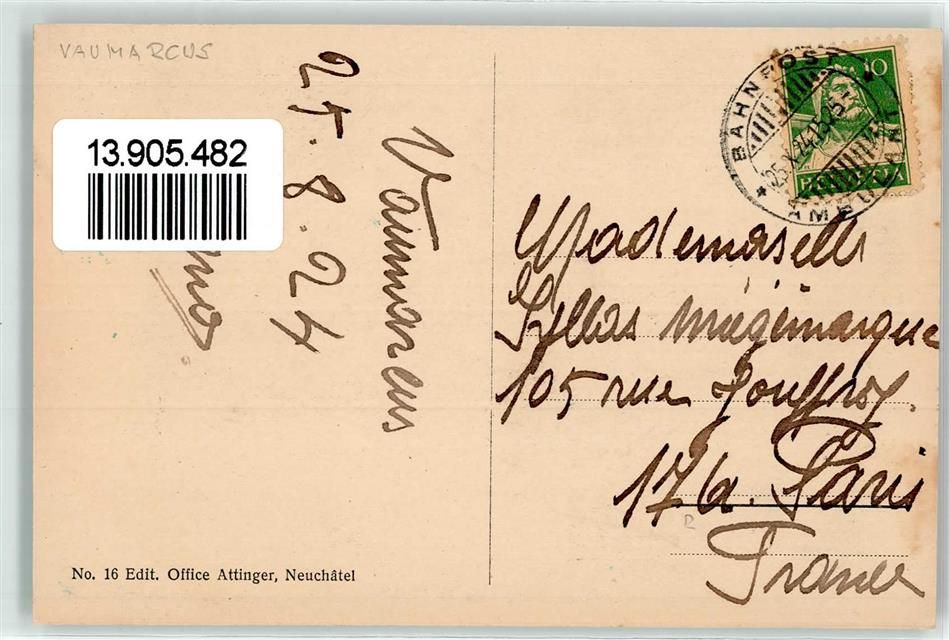 VAUMARCUS
13.905.482
Vaumarcus
25.8.24
No. 16 Edit. Office Attinger, Neuchâtel
BAHNPOST
AMBULANT
10
HELVETIA
Mademoiselle
105 rue Jouffroy.
17/a. Paris
France